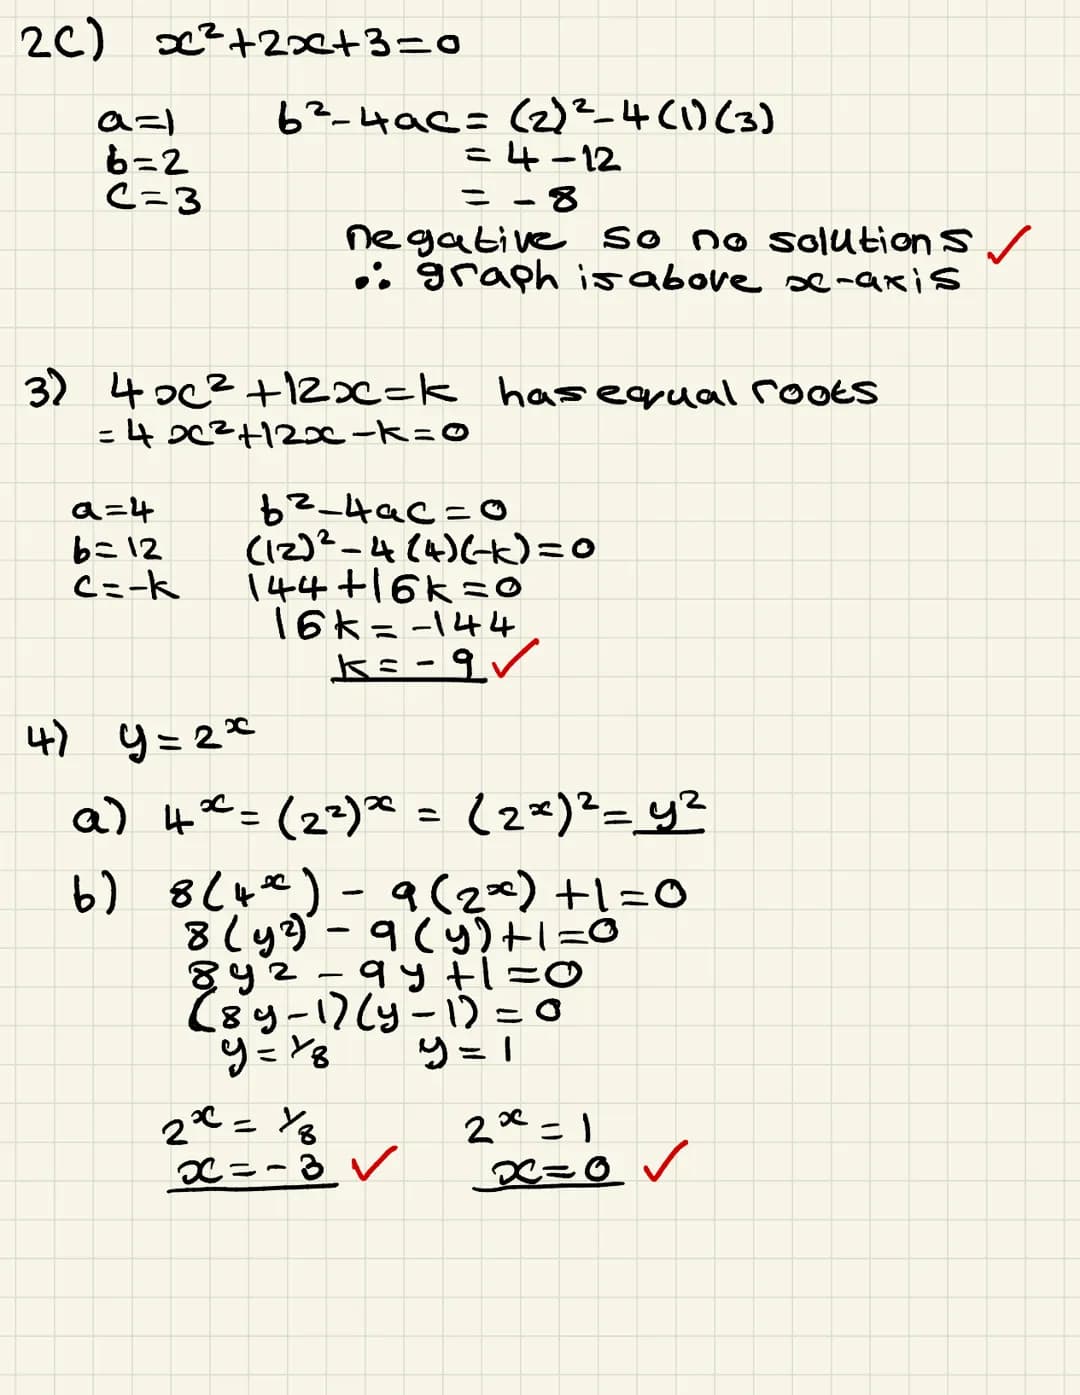 2C) x²+2x+3=0
a=1 b²-4ac= (2)²-4(1)(3)
b=2 = 4-12
C=3 = -8
negative so no solutions ✓
∴ graph is above x-axis
3) 4x²+12x=k has equal roots
= 4x²+12x-k=0
a=4 b²-4ac=0
b=12 (12)²-4(4)(-k)=0
C=-k 144+16k=0
16k=-144
k=-9 ✓
4) y=2ˣ
a) 4ˣ= (2²)ˣ = (2ˣ)²= y²
b) 8(4ˣ) - 9(2ˣ) +1=0
8(y²) - 9(y)+1=0
8y2 - 9y+1=0
(8y-1)(y-1)=0
y=1/8 y=1
2ˣ = 1/8 2ˣ=1
x=-3 ✓ x=0 ✓